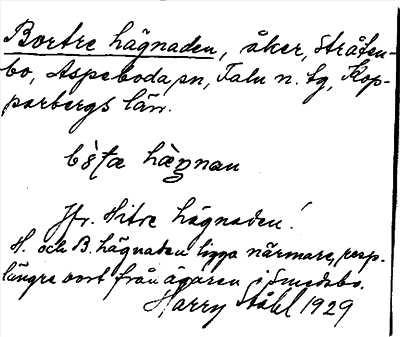 Bortre hägnaden, åker, Stråten-
bo, Aspeboda sn, Falu n. tg, Kop-
parbergs län.
hägnan
Jfr. Hitre hägnaden!
H. och B. hägnaden ligga närmare, resp.
längre bort från ägaren i Smedsbo.
Harry Ståhl 1929